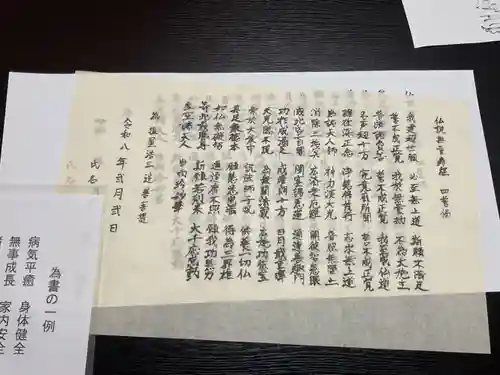 仏説無量寿経 四誓偈
我建超世願 必至無上道 斯願不満足
誓不成正覚 我於無量劫 不為大施主
普済諸貧苦 誓不成正覚 我至成仏道
名声超十方 究竟靡所聞 誓不成正覚
離欲深正念 浄慧修梵行 志求無上道
為諸天人師 神力演大光 普照無際土
消除三垢冥 広済衆厄難 開彼智慧眼
滅此昏盲闇 閉塞諸悪道 通達善趣門
功祚成満足 威曜朗十方 日月戢重暉
天光隠不現 為衆開法蔵 広施功徳宝
常於大衆中 説法師子吼 供養一切仏
具足衆徳本 願慧悉成満 得為三界雄
如仏無礙智 通達靡不照 願我功慧力
等此最勝尊 斯願若剋果 大千応感動
虚空諸天人 当雨珍妙華
為 菩提
令和八年弐月弐日
氏名
為書の一例
病気平癒 身体健全
無事成長 家内安全